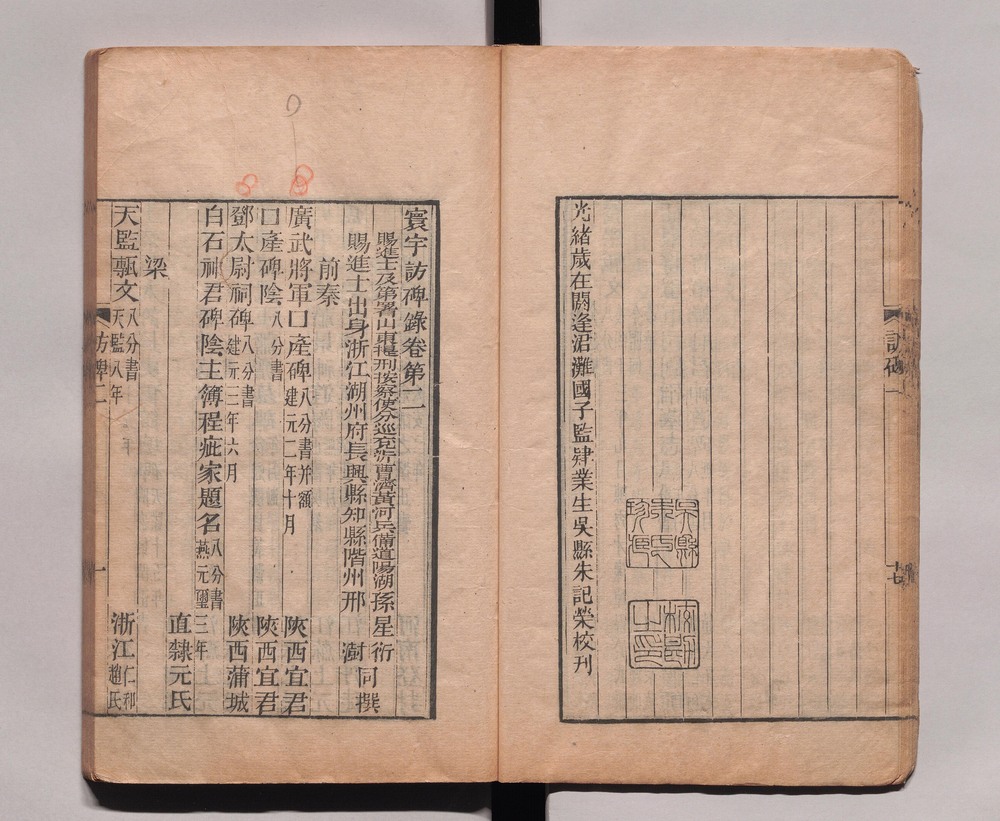 光緒歲在閼逢涒灘國子監肄業生吳縣朱記榮校刊
吳縣
朱氏
校勘
之印
訪碑一
十七
寰宇訪碑錄卷第二
賜進士及第署山東提刑按察使分巡兗沂曹濟黃河兵備道陽湖孫星衍
賜進士出身浙江湖州府長興縣知縣階州邢澍同撰
前秦
廣武將軍□產碑八分書并額建元二年十月 陝西宜君
□產碑陰八分書 陝西宜君
鄧太尉祠碑八分書建元三年六月 陝西蒲城
白石神君碑陰主簿程疵家題名八分書燕元璽三年
直隸元氏
梁
天監甎文八分書天監八年 浙江仁和趙氏
訪碑二
一